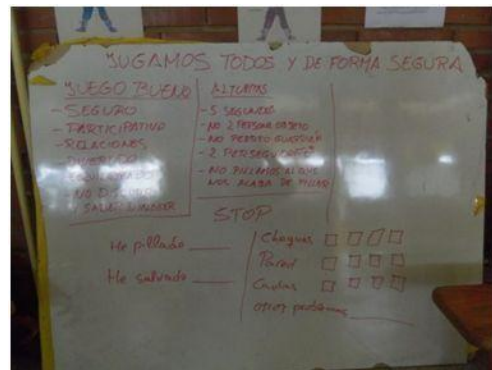 JUGAMOS TODOS Y DE FORMA SEGURA
JUEGO BUENO
- SEGURO
- PARTICIPATIVO
- RELACIONES
DIVERTIDO
NO D
Y SABER
ALTURAS
- 5 SEGUNDOS
- NO 2 PERSONA OBJETO
- NO PERRITO GUARDIÁN
- 2 PERSEGUIDORES
- NO PILLAMOS AL QUE
NOS ACABA DE PILLAR
STOP
He pillado
He salvado
Choques
Pared
Caídas
otros problemas